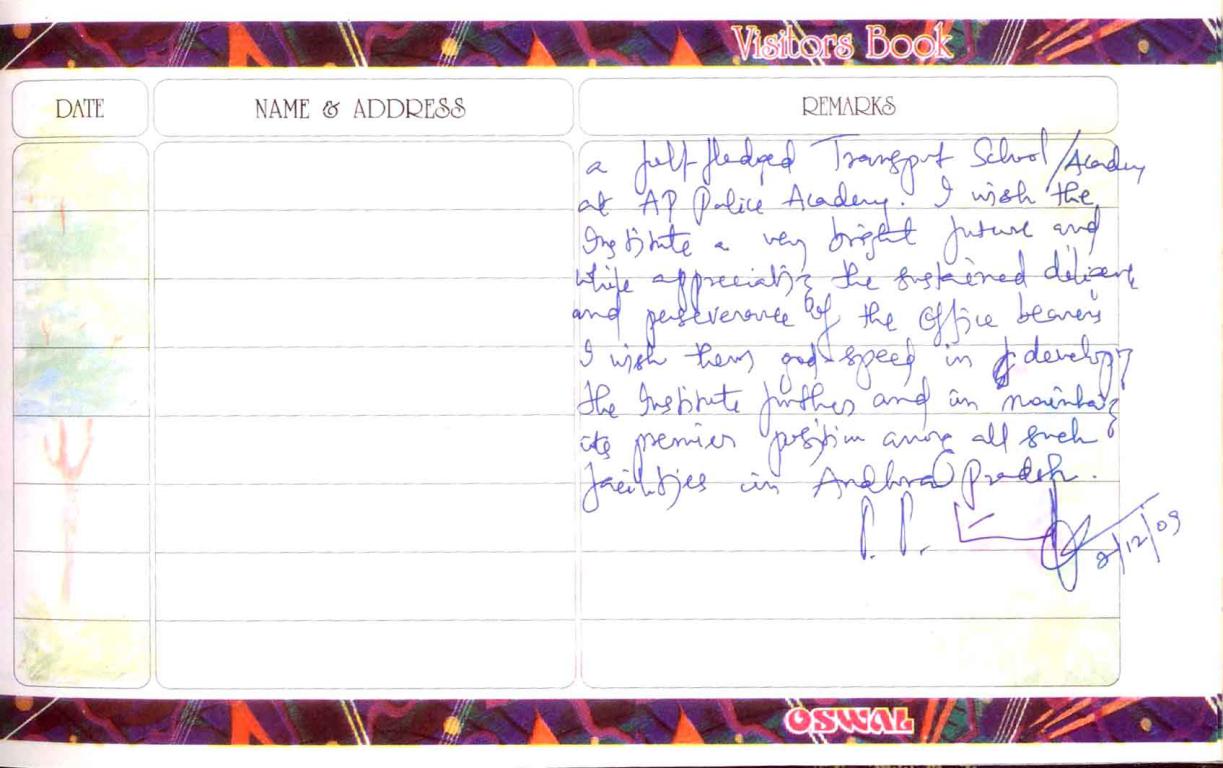 Visitors Book
DATE NAME & ADDRESS REMARKS
a full-fledged Transport School/Academy
at AP Police Academy. I wish the
Institute a very bright future and
while appreciating the sustained
and perseverance of the office bearers
I wish them god-speed in developing
the Institute further and in maintaing
its premier position among all such
facilities in Andhra Pradesh.
8/12/09
OSWAL